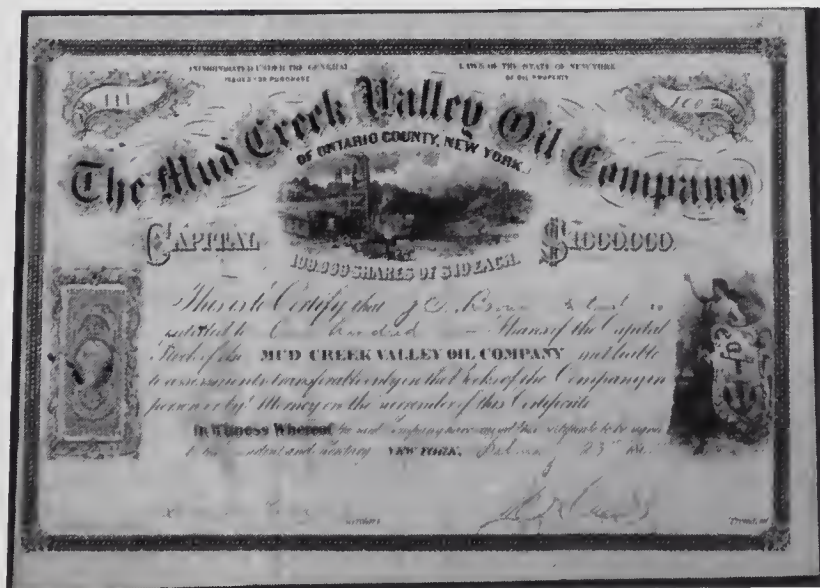 INCORPORATED UNDER THE GENERAL LAWS OF THE STATE OF NEW YORK
OF OIL PROPERTY
No 111 100 Shares
The Mud Creek Valley Oil Company
OF ONTARIO COUNTY, NEW YORK.
CAPITAL $1000.000.
100.000 SHARES OF $10 EACH.
This is to Certify that J. Brown is
entitled to One hundred Shares of the Capital
Stock of the MUD CREEK VALLEY OIL COMPANY not liable
to assessments transferable only on the Books of the Company in
person or by Attorney on the surrender of this Certificate
In Witness Whereof the said Company have caused this certificate to be signed
by the President and Secretary NEW YORK, 23